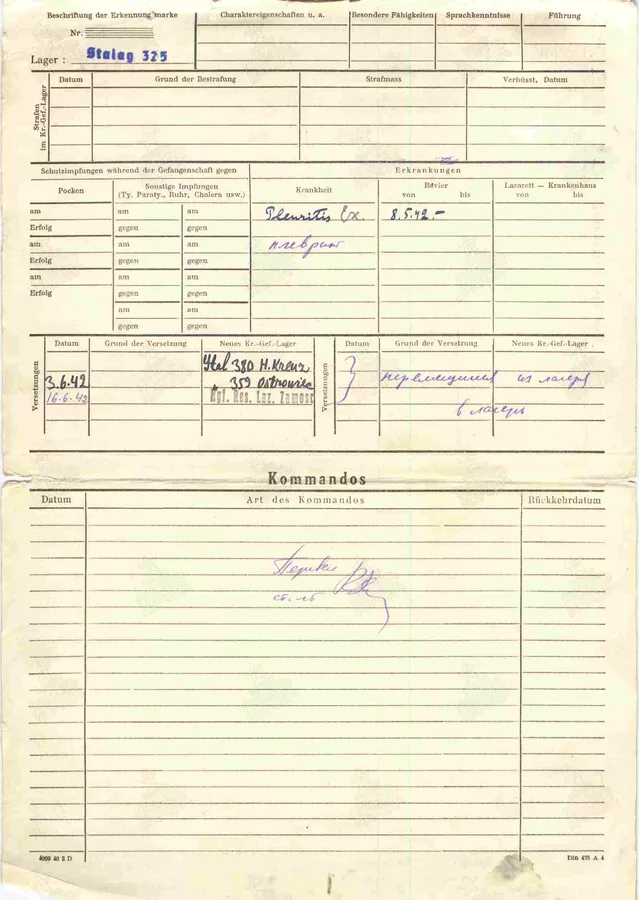 Beschriftung der Erkennungsmarke
Charaktereigenschaften u. a.
Besondere Fähigkeiten
Sprachkenntnisse
Führung
Nr.
Lager : Stalag 325
Strafen im Kr.-Gef.-Lager
Datum
Grund der Bestrafung
Strafmass
Verbüsst, Datum
Schutzimpfungen während der Gefangenschaft gegen
Erkrankungen
Pocken
Sonstige Impfungen
(Ty. Paraty., Ruhr, Cholera usw.)
Krankheit
Revier
von bis
Lazarett — Krankenhaus
von bis
am am am Pleuritis Ex. 8.5.42.-
Erfolg gegen gegen
am am am плеврит
Erfolg gegen gegen
am am am
Erfolg gegen gegen
am am
gegen gegen
Versetzungen
Datum Grund der Versetzung Neues Kr.-Gef.-Lager
Versetzungen
Datum Grund der Versetzung Neues Kr.-Gef.-Lager
380 H.Kreuz
3.6.42 " 359 Ostrowiec
16.6.42 Kgf. Res. Laz. Zamosc
из лагеря
в лагерь
Kommandos
Datum Art des Kommandos Rückkehrdatum
4099 40 2 D
Din 476 A 4